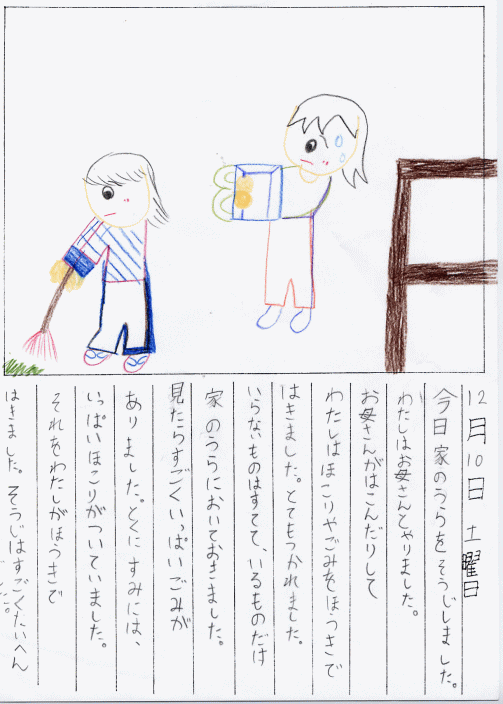 12月10日 土曜日
今日家のうらをそうじしました。
わたしはお母さんとやりました。
お母さんがはこんだりして
わたしはほこりやごみをほうきで
はきました。とてもつかれました。
いらないものはすてて、いるものだけ
家のうらにおいておきました。
見たらすごくいっぱいごみが
ありました。とくにすみには、
いっぱいほこりがついていました。
それをわたしがほうきで
はきました。そうじはすごくたいへん